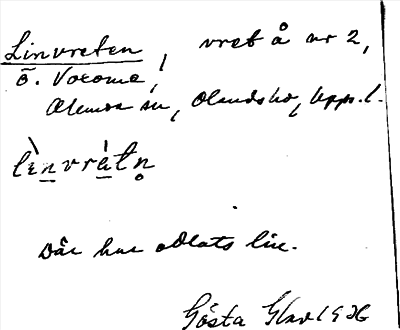 Linvreten, vret å nr 2,
ö. Voxome,
Alunda sn, Olands hd, Upps. l.
lìnvrètn̥
Där har odlats lin.
Gösta Elav 1926